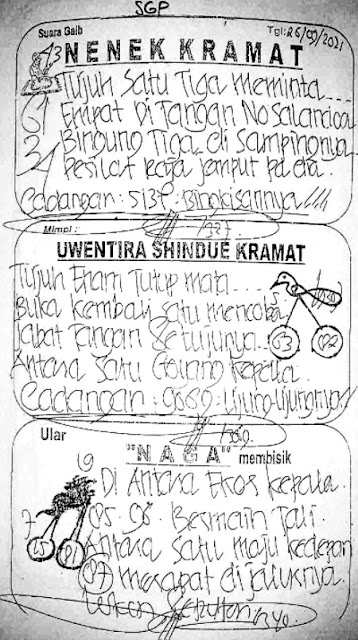 SGP
Suara Gaib
Tgl: 26/09/2021
NENEK KRAMAT
Tujuh Satu Tiga Meminta
Empat Di Tangan No
Bingung Tiga di Sampingnya
Pesilat Raja jemput
Cadangan: 5137. Bingkisannya!!!!
Mimpi:
UWENTIRA SHINDUE KRAMAT
Tujuh Enam Tutup mata
Buka Kembali Satu mencoba
Jabat Tangan Setujunya
Antara Satu Goyang Kepala.
Cadangan: 9569. Ujung-Ujungnya!!
Ular
"NAGA" membisik
Di Antara Ekor Kepala.
05. 98. Bermain Tali.
Antara Satu Maju Kedepan
07 merapat di